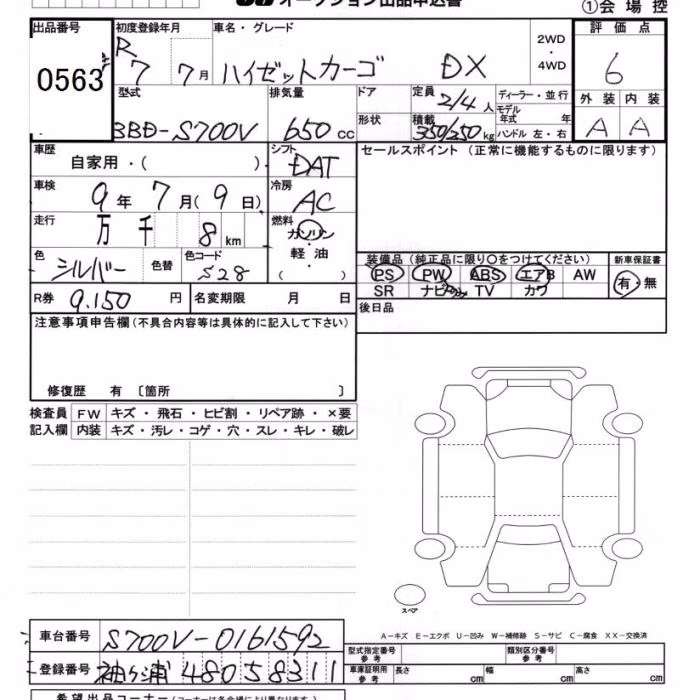 オークション出品申込書
①会場控
出品番号 0563
初度登録年月 R 7 7月
車名・グレード ハイゼットカーゴ DX
2WD・4WD
評価点 6
型式 3BD-S700V
排気量 650 cc
ドア
形状
定員 2/4 人
積載 350/250 kg
ディーラー・並行
モデル年式 年
ハンドル 左・右
外装 A
内装 A
車歴 自家用・( )
シフト DAT
セールスポイント (正常に機能するものに限ります)
車検 9年 7月(9日)
冷房 AC
走行 万 千 8 km
燃料 ガソリン
軽油
( )
色 シルバー
色替
色コード S28
装備品(純正品に限り○をつけてください)
PS PW ABS エアB AW
SR ナビ TV カワ
新車保証書
有・無
R券 9.150 円
名変期限 月 日
後日品
注意事項申告欄(不具合内容等は具体的に記入して下さい)
修復歴 有 〔箇所 〕
検査員記入欄
FW キズ・飛石・ヒビ割・リペア跡・×要
内装 キズ・汚レ・コゲ・穴・スレ・キレ・破レ
スペア
A-キズ E-エクボ U-凹み W-補修跡 S-サビ C-腐食 XX-交換済
車台番号 S700V-0161592
登録番号 袖ヶ浦 480 5 8311
型式指定番号 参考
類別区分番号 参考
車庫証明用 参考
長さ cm
幅 cm
高さ cm
希望出品コーナー